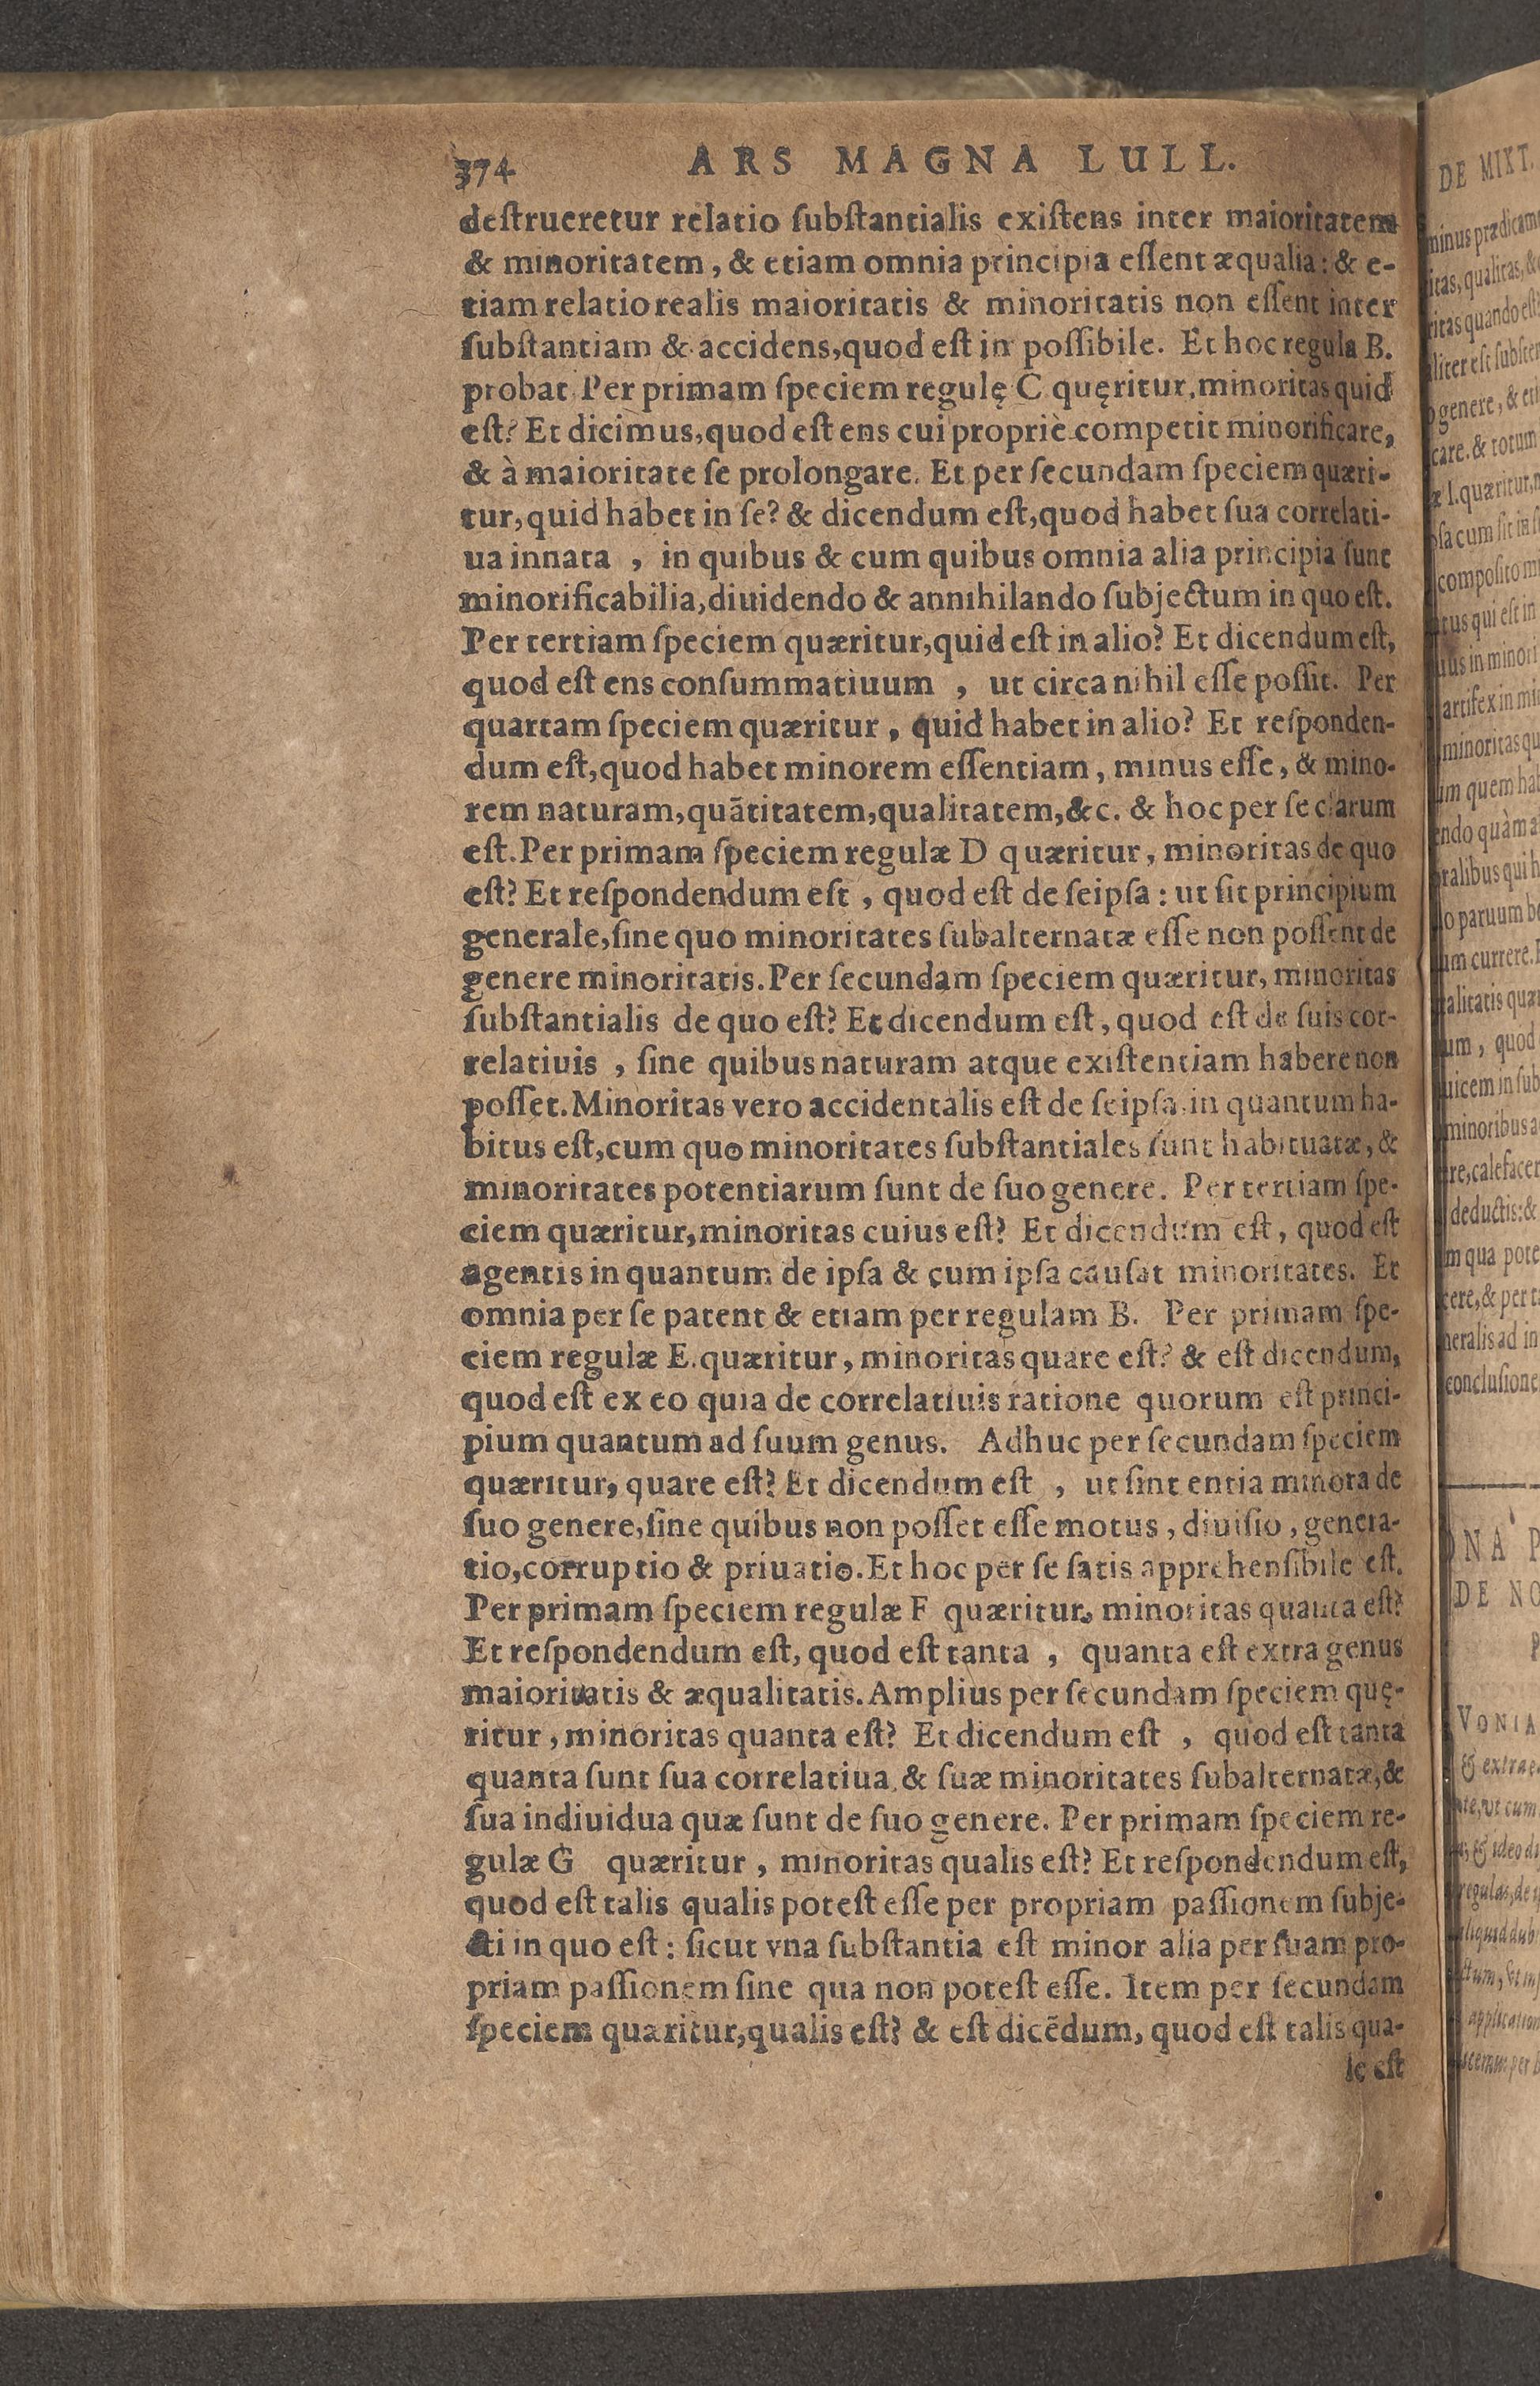 374 ARS MAGNA LULL.
deſtrueretur relatio ſubſtantialis exiſtens inter maioritatem
& minoritatem, & etiam omnia principia eſſent æqualia: & e-
tiam relatio realis maioritatis & minoritatis non eſſent inter
ſubſtantiam & accidens, quod eſt in poſſibile. Et hoc regula B.
probat. Per primam ſpeciem regulę C quęritur, minoritas quid
eſt? Et dicimus, quod eſt ens cui propriè competit minorificare,
& à maioritate ſe prolongare. Et per ſecundam ſpeciem quæri-
tur, quid habet in ſe? & dicendum eſt, quod habet ſua correlati-
ua innata , in quibus & cum quibus omnia alia principia ſunt
minorificabilia, diuidendo & annihilando ſubjectum in quo eſt.
Per tertiam ſpeciem quæritur, quid eſt in alio? Et dicendum eſt,
quod eſt ens conſummatiuum , ut circa nihil eſſe poſſit. Per
quartam ſpeciem quæritur , quid habet in alio? Et reſponden-
dum eſt, quod habet minorem eſſentiam, minus eſſe, & mino-
rem naturam, quãtitatem, qualitatem, &c. & hoc per ſe clarum
eſt. Per primam ſpeciem regulæ D quæritur, minoritas de quo
eſt? Et reſpondendum eſt , quod eſt de ſeipſa : ut ſit principium
generale, ſine quo minoritates ſubalternatæ eſſe non poſſent de
genere minoritatis. Per ſecundam ſpeciem quæritur, minoritas
ſubſtantialis de quo eſt? Et dicendum eſt, quod eſt de ſuis cor-
relatiuis , ſine quibus naturam atque exiſtentiam habere non
poſſet. Minoritas vero accidentalis eſt de ſeipſa, in quantum ha-
bitus eſt, cum quo minoritates ſubſtantiales ſunt habituatæ, &
minoritates potentiarum ſunt de ſuo genere. Per tertiam ſpe-
ciem quæritur, minoritas cuius eſt? Et dicendum eſt, quod eſt
agentis in quantum de ipſa & cum ipſa cauſat minoritates. Et
omnia per ſe patent & etiam per regulam B. Per primam ſpe-
ciem regulæ E. quæritur, minoritas quare eſt? & eſt dicendum,
quod eſt ex eo quia de correlatiuis ratione quorum eſt princi-
pium quantum ad ſuum genus. Adhuc per ſecundam ſpeciem
quæritur, quare eſt? Et dicendum eſt , ut ſint entia minora de
ſuo genere, ſine quibus non poſſet eſſe motus, diuiſio, genera-
tio, corruptio & priuatio. Et hoc per ſe ſatis apprehenſibile eſt.
Per primam ſpeciem regulæ F quæritur, minoritas quanta eſt?
Et reſpondendum eſt, quod eſt tanta , quanta eſt extra genus
maioritatis & æqualitatis. Amplius per ſecundam ſpeciem quę-
ritur, minoritas quanta eſt? Et dicendum eſt , quod eſt tanta
quanta ſunt ſua correlatiua, & ſuæ minoritates ſubalternatæ, &
ſua indiuidua quæ ſunt de ſuo genere. Per primam ſpeciem re-
gulæ G quæritur, minoritas qualis eſt? Et reſpondendum eſt,
quod eſt talis qualis poteſt eſſe per propriam paſſionem ſubje-
cti in quo eſt: ſicut vna ſubſtantia eſt minor alia per ſuam pro-
priam paſſionem ſine qua non poteſt eſſe. Item per ſecundam
ſpeciem quæritur, qualis eſt? & eſt dicẽdum, quod eſt talis qua-
le eſt
DE MIXT.